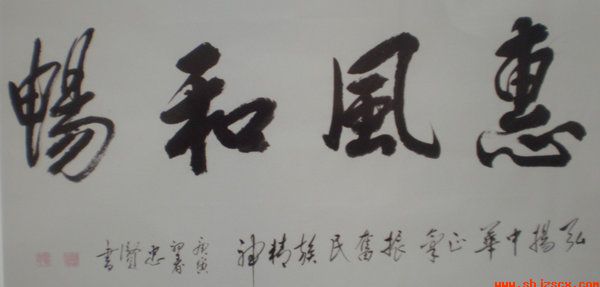 惠風和暢
弘揚中華正氣振奮民族精神
庚寅
初春
忠賢書
www.shjzscx.com